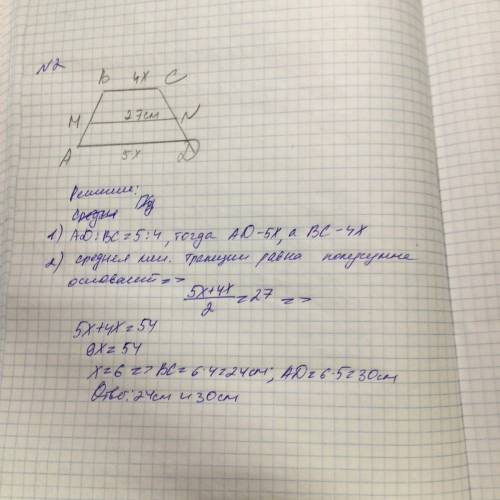 N2
B 4x C
M 27см N
A 5x D
Решение:
средня
1) AD:BC=5:4, тогда AD-5X, а BC-4X
2) средняя лин. трапеции равна полусумме
оснований =>
5x+4x/2=27 =>
5x+4x=54
9x=54
x=6 => BC=6·4=24см; AD=6·5=30см
Ответ: 24см и 30см